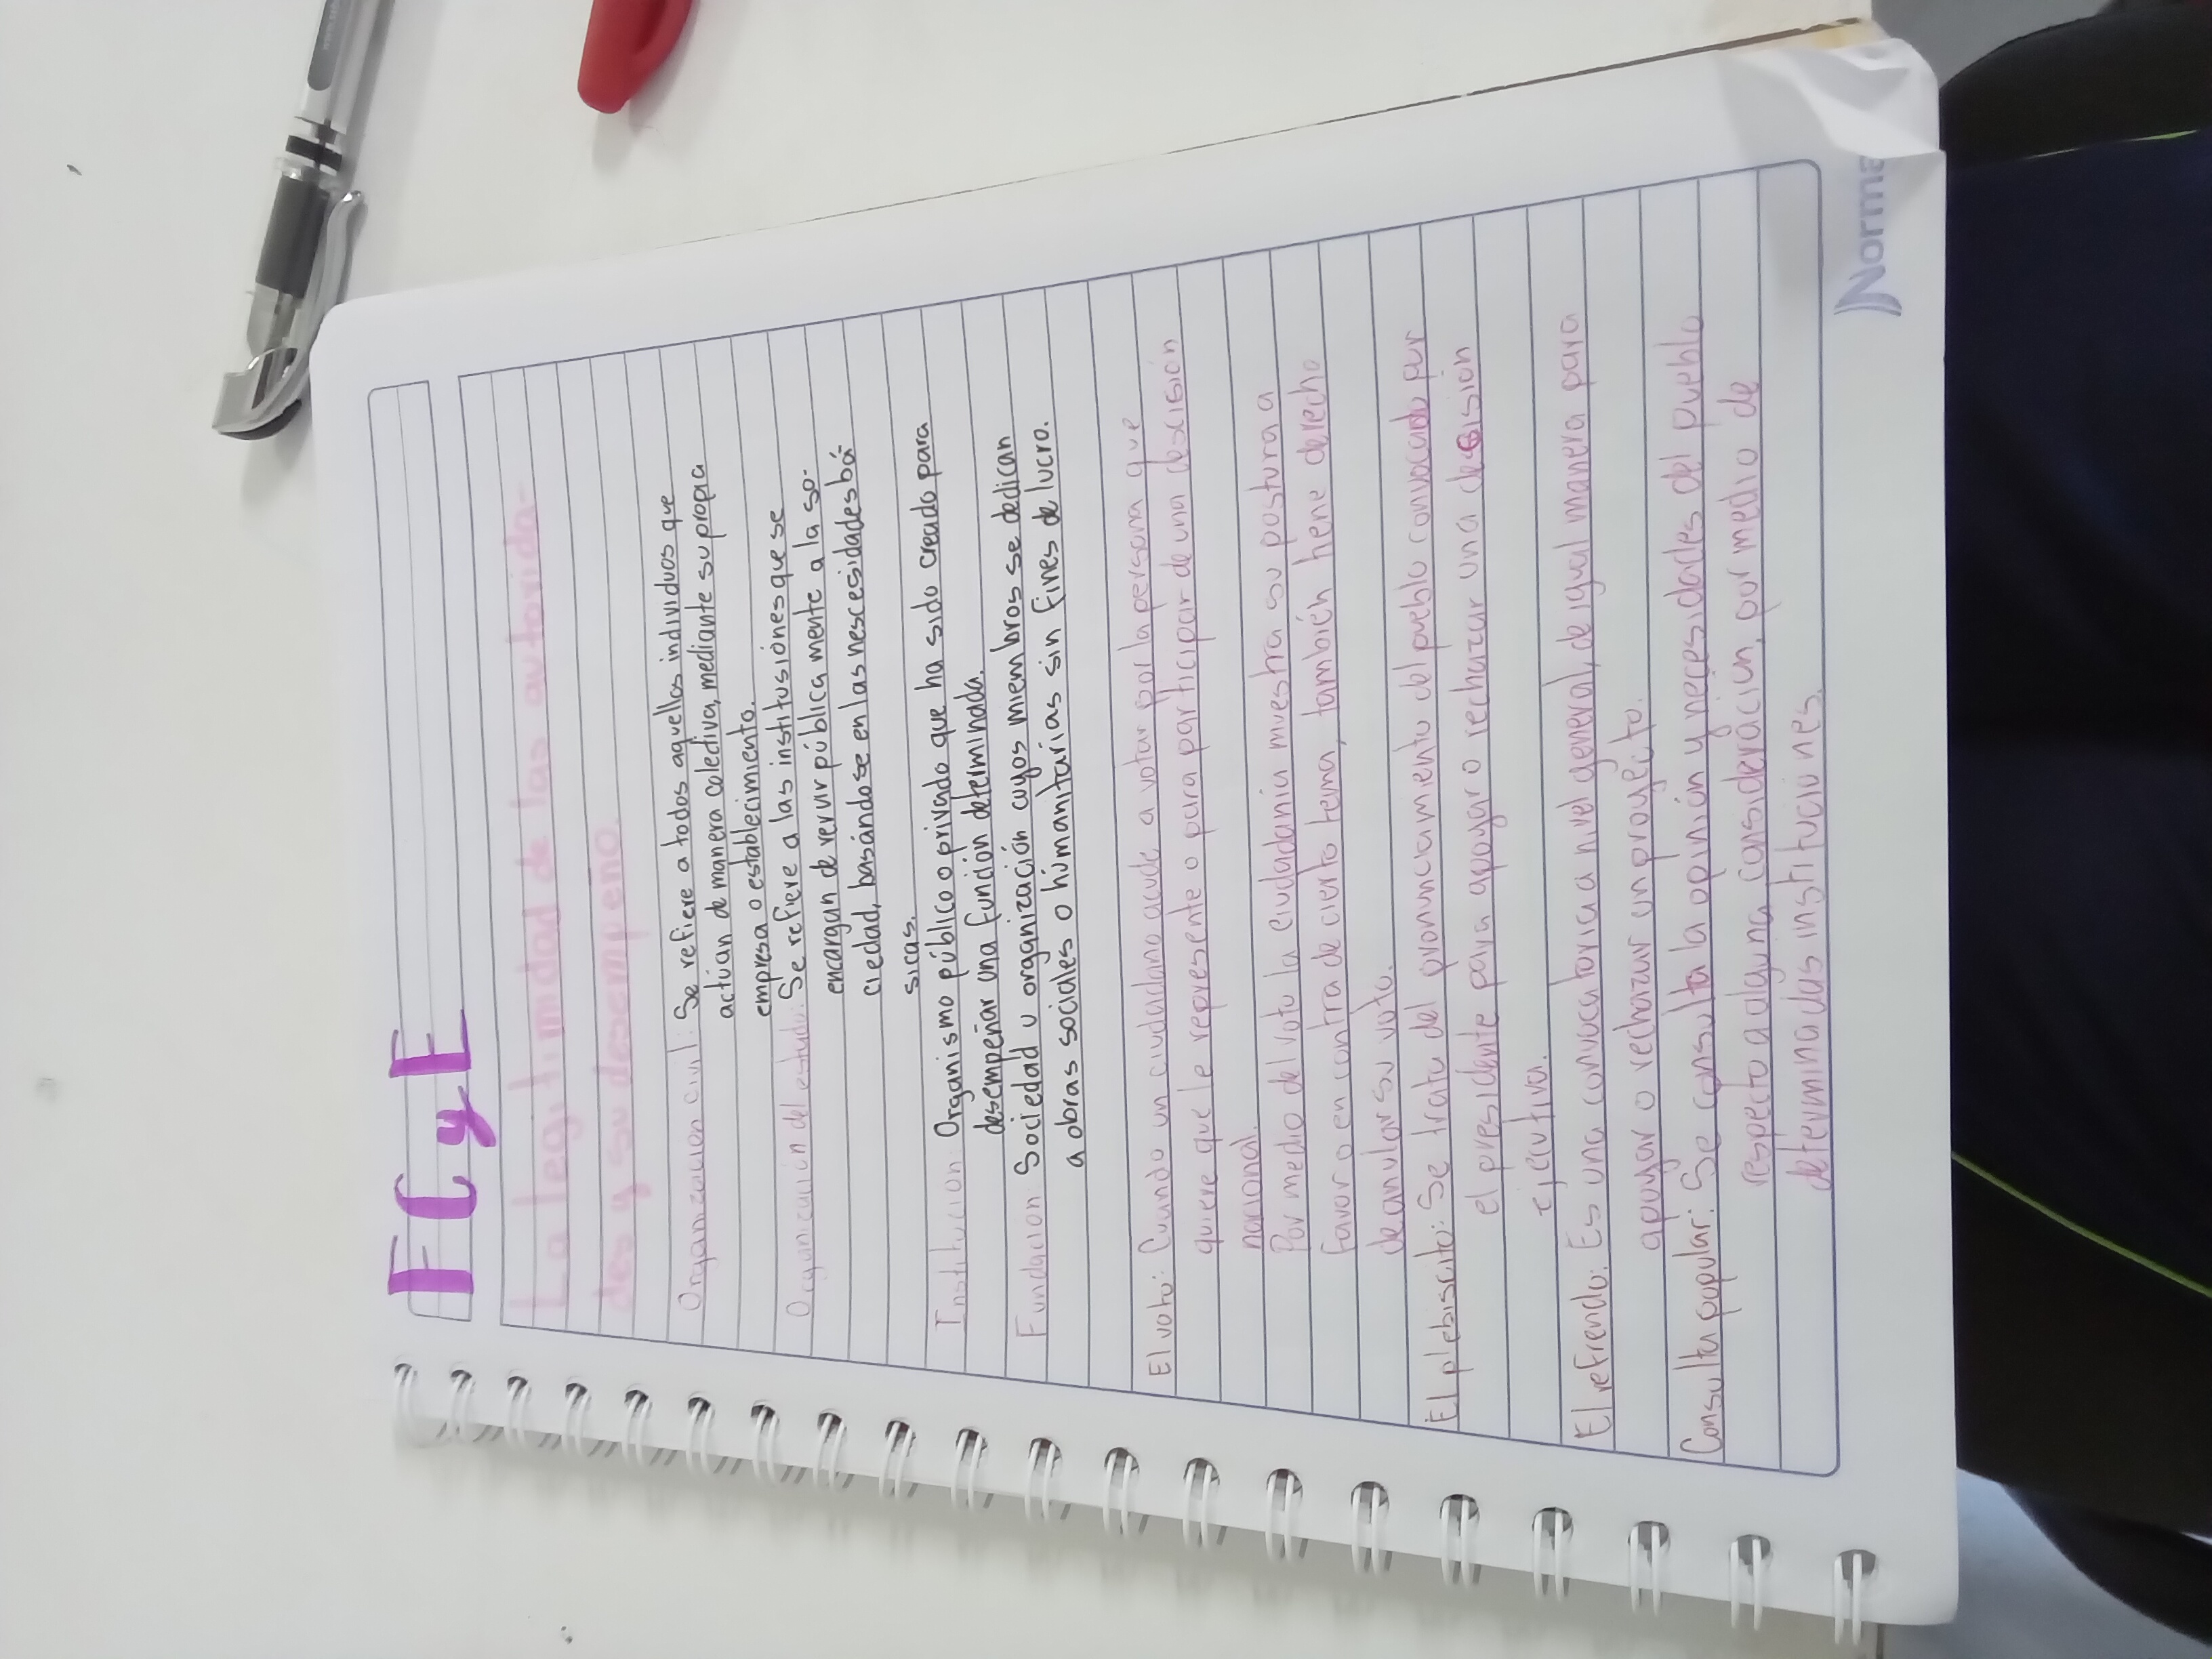 F C y E
La legitimidad de las autorida-
des y su desempeño.
Organización civil: Se refiere a todos aquellos individuos que
actúan de manera colectiva, mediante su propia
empresa o establecimiento.
Organización del estado: Se refiere a las institusiónes que se
encargan de rervir pública mente a la so-
ciedad, basándose en las nescesidades bá-
sicas.
Institución: Organismo público o privado que ha sido creado para
desempeñar una función determinada.
Fundación Sociedad u organización cuyos miembros se dedican
a obras sociales o humanitarias sin fines de lucro.
El voto: Cuando un ciudadano acude a votar por la persona que
quiere que le represente o para participar de una descisión
nacional.
Por medio del voto la ciudadanía muestra su postura a
favor o en contra de cierto tema, también tiene derecho
de anular su voto.
El plebiscito: Se trata del pronunciamiento del pueblo convocado por
el presidente para apoyar o rechazar una decisión
ejecutiva.
El refrendo: Es una convocatoria a nivel general, de igual manera para
apoyar o rechazar un proyecto.
Consulta popular: Se consulta la opinión y necesidades del pueblo
respecto a alguna consideración, por medio de
determinadas instituciones.
Norma